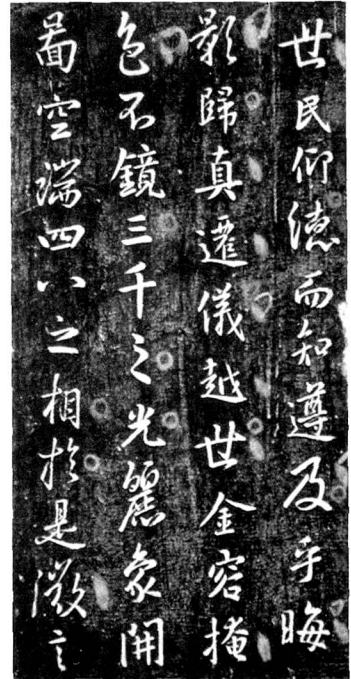 世民仰德而知遵及乎晦
影歸真遷儀越世金容掩
色不鏡三千之光麗象開
啚空端四八之相於是微言